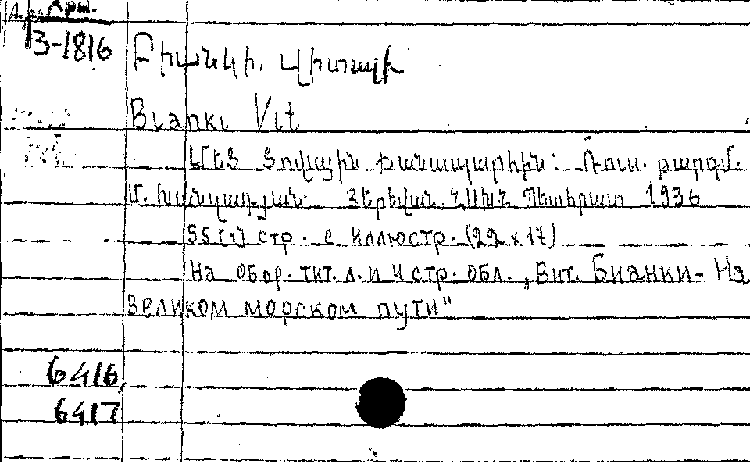 Արм.
3-1816
Բիանկի. Վիտալի
Bianki Vit
Մեծ Ծովային Ճանապարհին: Ռուս. թարգմ.
Մ. Խանդադյան. Յերեվան. ՀԽՍՀ Պետհրատ 1936
55 [1] стр. с иллюстр. (22 x 17)
На обор. тит. л. и 4 стр. обл. „Вит. Бианки - На
великом морском пути"
6416
6417